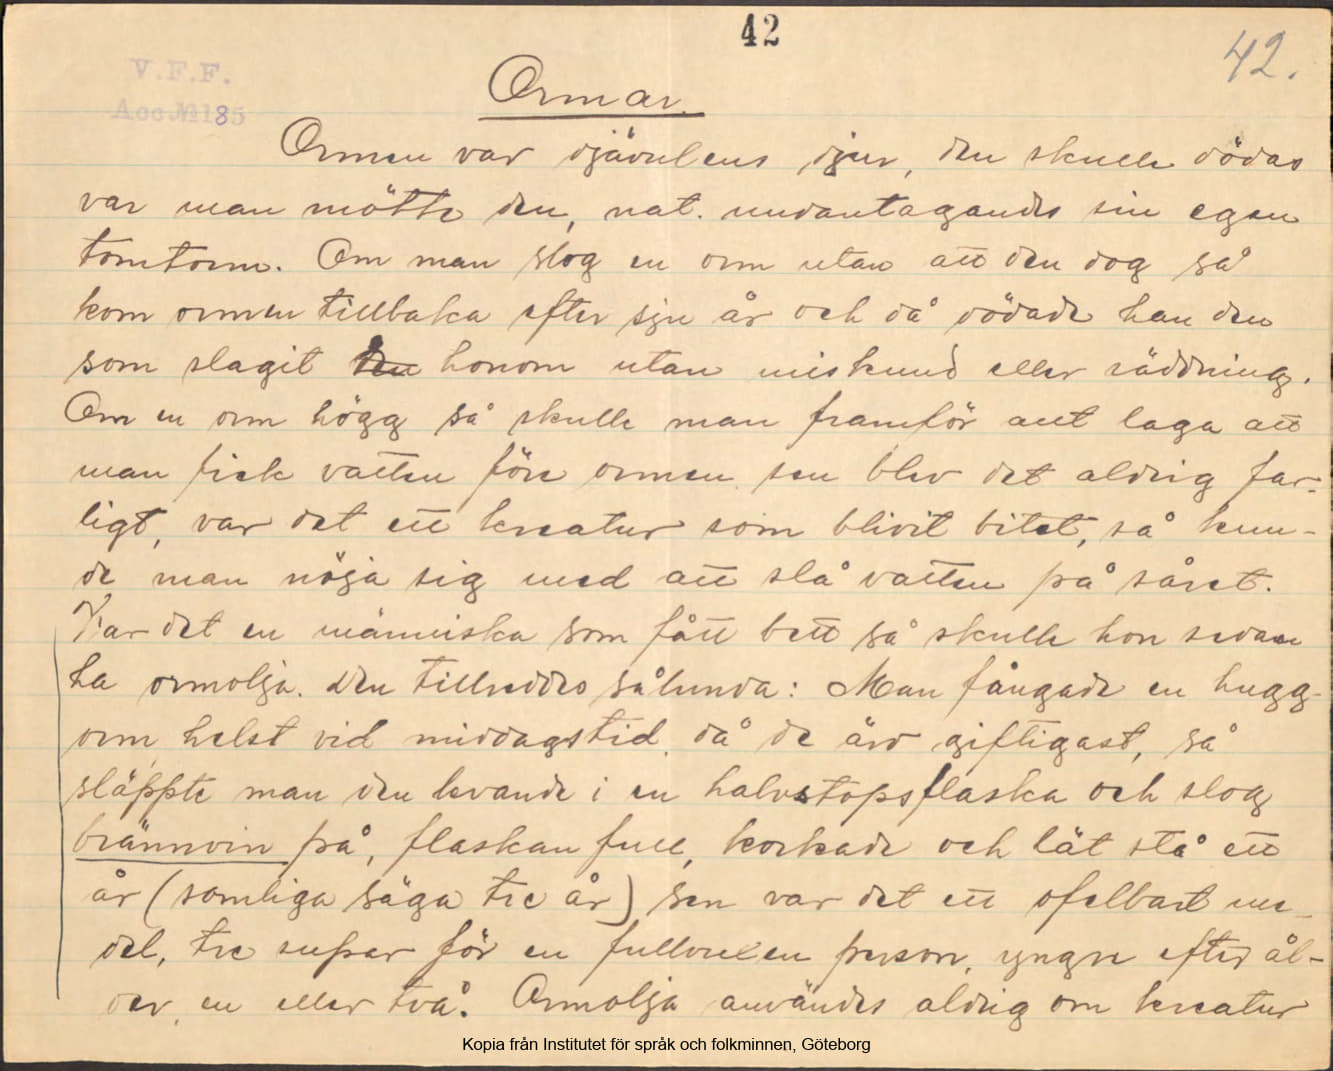 42
42.
V.F.F.
Acc.№185
Ormar.
Ormen var djävulens djur, den skulle dödas
var man mötte den, nat. undantagandes sin egen
tomtorm. Om man slog en orm utan att den dog så
kom ormen tillbaka efter sju år och då dödade han den
som slagit den honom utan miskund eller räddning.
Om en orm högg så skulle man framför allt laga att
man fick vatten före ormen sen blev det aldrig far-
ligt, var det ett kreatur som blivit bitet, så kun-
de man nöja sig med att slå vatten på såret.
Var det en människa som fått bett så skulle hon sedan
ha ormolja. Den tillreddes sålunda: Man fångade en hugg-
orm, helst vid middagstid, då de äro giftigast, så
släppte man den levande i en halvstopsflaska och slog
brännvin på, flaskan full, korkade och lät stå ett
år (somliga säga tre år) sen var det ett ofelbart me-
del, tre supar för en fullvuxen person, yngre efter ål-
der, en eller två. Ormolja användes aldrig om kreatur
Kopia från Institutet för språk och folkminnen, Göteborg